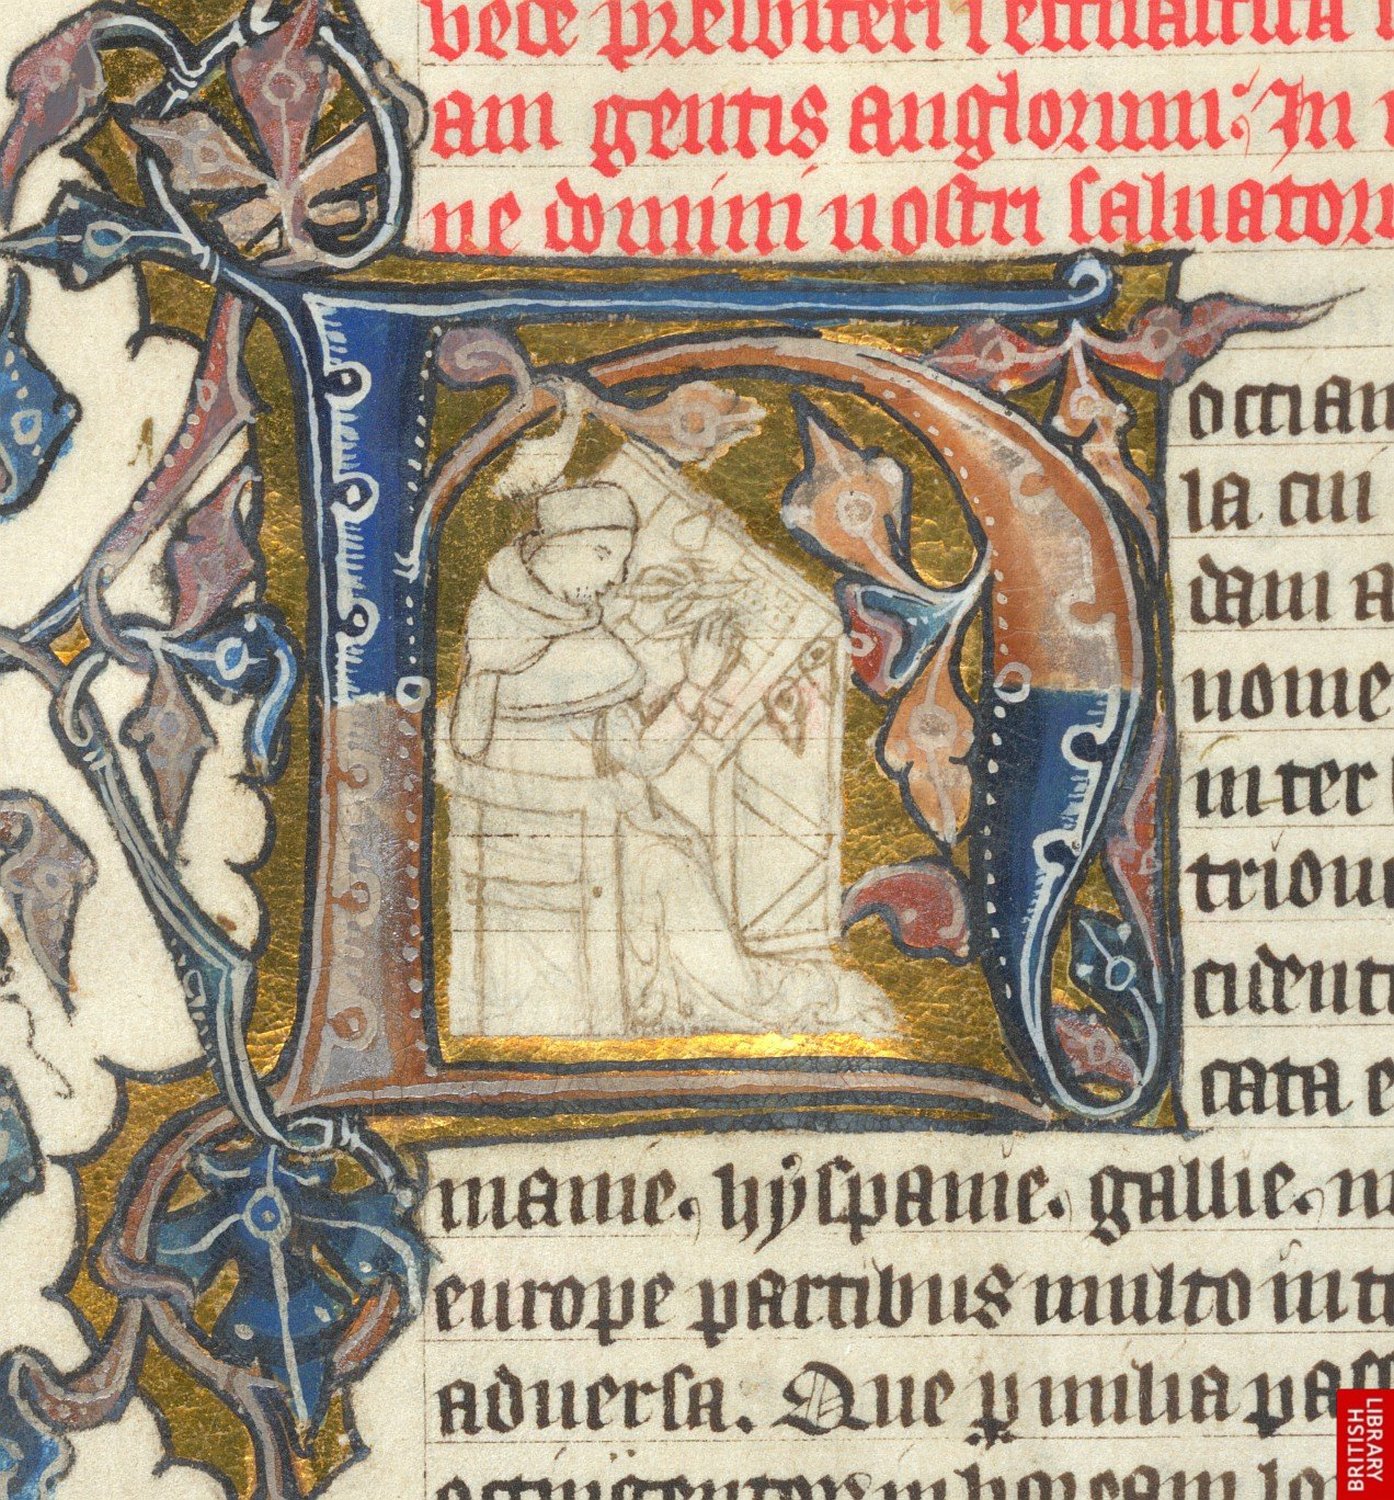 bede presbiteri i ecclesiastica
am gentis anglorum; In
ne domini nostri saluator
occian
la cui
dam a
nomen
inter
triona
cident
cata e
manie. hyspanie. gallie.
europe partibus multo int
aduersa. Que p milia pass
BRITISH
LIBRARY